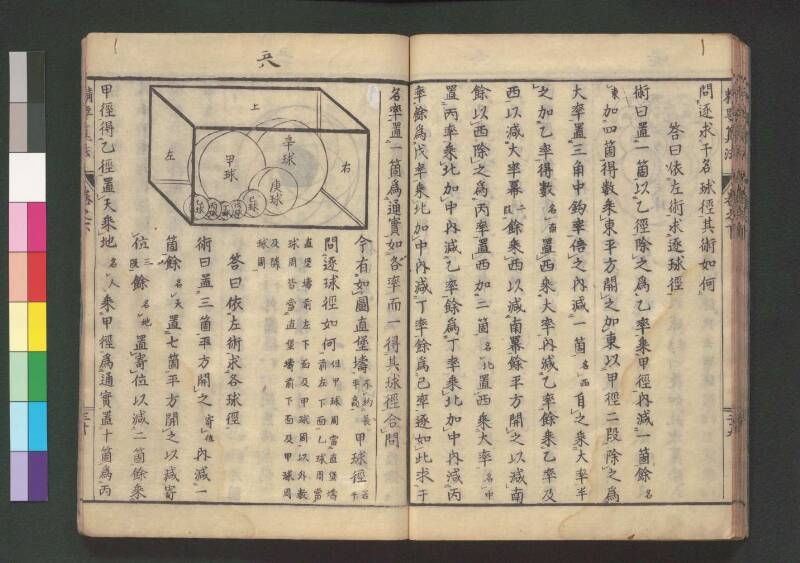 問逐求于名球徑其術如何
答曰依左術求逐球徑
術曰置一箇以乙徑除之爲乙率乘甲徑内減一箇餘名
東加四箇得數乘東平方開之加東以甲徑二段除之爲
大率置三角中鈎率倍之内減一箇名西自之乘大率半
之加乙率得數名南置西乘大率内減乙率餘乘乙率及
西以減大率冪二段餘乘西以減南冪餘平方開之以減南
餘以西除之爲丙率置西加二箇名北置西乘大率名中
置丙率乘北加中内減乙率餘爲丁率乘北加中内減丙
率餘爲戊率乘北加中内減丁率餘爲己率逐如此求于
名率置一箇爲通實如各率而一得其球徑合問
兵
上
左
右
甲球
辛球
庚球
己球
今有如圖直堡壔不拘長平高甲球徑若干
問逐球徑如何但甲球周當直堡壔
前左下面乙球周當
直堡壔前左下面及甲球周以外教
球周皆當直堡壔前下面及甲球周
及隣
球周
答曰依左術求各球徑
術曰置三箇平方開之寄位内減一
箇餘名天置七箇平方開之以減寄
位三段餘名地置寄位以減二箇餘乘
甲徑得乙徑置天乘地名人乘甲徑爲通實置十箇爲丙
精要算法
三十